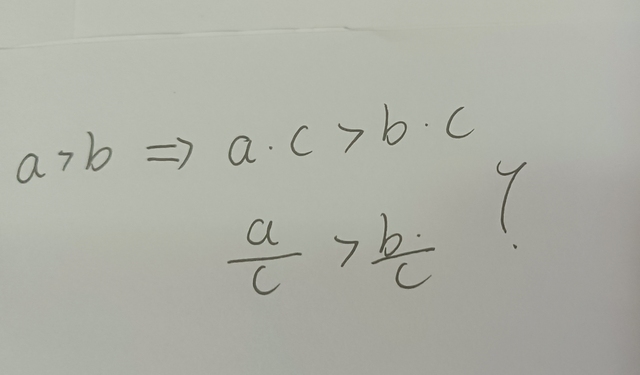 a > b ⇒ a · c > b · c
a/c > b/c ?